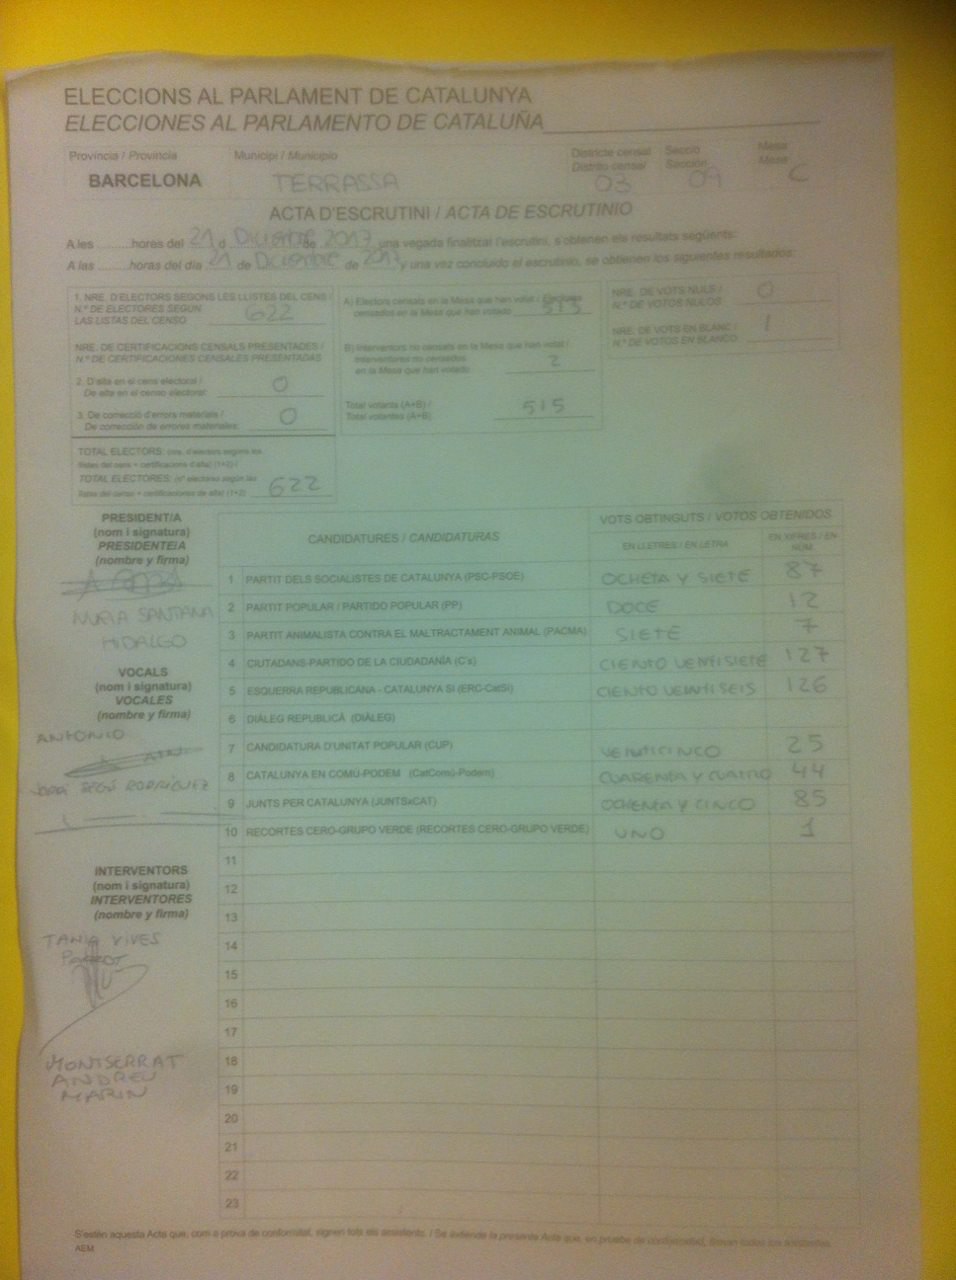 ELECCIONS AL PARLAMENT DE CATALUNYA
ELECCIONES AL PARLAMENTO DE CATALUÑA
Provincia / Provincia Municipi / Municipio Districte censal Secció Mesa
Distrito censal Sección Mesa
BARCELONA TERRASSA 03 09 C
ACTA D'ESCRUTINI / ACTA DE ESCRUTINIO
A les ........hores del 21 d DICIEMBRE de 2017 una vegada finalitzat l'escrutini, s'obtenen els resultats següents:
A las ........horas del día 21 de DICIEMBRE de 2017 y una vez concluido el escrutinio, se obtienen los siguientes resultados:
1. NRE. D'ELECTORS SEGONS LES LLISTES DEL CENS /
N.º DE ELECTORES SEGÚN
LAS LISTAS DEL CENSO 622
NRE. DE CERTIFICACIONS CENSALS PRESENTADES /
N.º DE CERTIFICACIONES CENSALES PRESENTADAS
2. D'alta en el cens electoral /
De alta en el censo electoral: 0
3. De correcció d'errors materials /
De corrección de errores materiales: 0
TOTAL ELECTORS: (nre. d'electors segons les
llistes del cens + certificacions d'alta) (1+2) /
TOTAL ELECTORES: (nº electores según las
listas del censo + certificaciones de alta) (1+2) 622
A) Electors censats en la Mesa que han votat / Electores
censados en la Mesa que han votado 513
B) Interventors no censats en la Mesa que han votat /
Interventores no censados
en la Mesa que han votado 2
Total votants (A+B) /
Total votantes (A+B) 515
NRE. DE VOTS NULS /
N.º DE VOTOS NULOS 0
NRE. DE VOTS EN BLANC /
N.º DE VOTOS EN BLANCO 1
PRESIDENT/A
(nom i signatura)
PRESIDENTE/A
(nombre y firma)
NURIA SANTANA
HIDALGO
VOCALS
(nom i signatura)
VOCALES
(nombre y firma)
ANTONIO
RODRÍGUEZ
INTERVENTORS
(nom i signatura)
INTERVENTORES
(nombre y firma)
TANIA VIVES
MONTSERRAT
ANDREU
MARIN
CANDIDATURES / CANDIDATURAS VOTS OBTINGUTS / VOTOS OBTENIDOS
EN LLETRES / EN LETRA EN XIFRES / EN NÚM.
1 PARTIT DELS SOCIALISTES DE CATALUNYA (PSC-PSOE) OCHETA Y SIETE 87
2 PARTIT POPULAR / PARTIDO POPULAR (PP) DOCE 12
3 PARTIT ANIMALISTA CONTRA EL MALTRACTAMENT ANIMAL (PACMA) SIETE 7
4 CIUTADANS-PARTIDO DE LA CIUDADANÍA (C's) CIENTO VENTISIETE 127
5 ESQUERRA REPUBLICANA - CATALUNYA SÍ (ERC-CatSí) CIENTO VEINTISEIS 126
6 DIÀLEG REPUBLICÀ (DIÀLEG)
7 CANDIDATURA D'UNITAT POPULAR (CUP) VENTICINCO 25
8 CATALUNYA EN COMÚ-PODEM (CatComú-Podem) CUARENTA Y CUATRO 44
9 JUNTS PER CATALUNYA (JUNTSxCAT) OCHENTA Y CINCO 85
10 RECORTES CERO-GRUPO VERDE (RECORTES CERO-GRUPO VERDE) UNO 1
11
12
13
14
15
16
17
18
19
20
21
22
23
S'estén aquesta Acta que, com a prova de conformitat, signen tots els assistents. / Se extiende la presente Acta que, en prueba de conformidad, firman todos los asistentes.
AEM